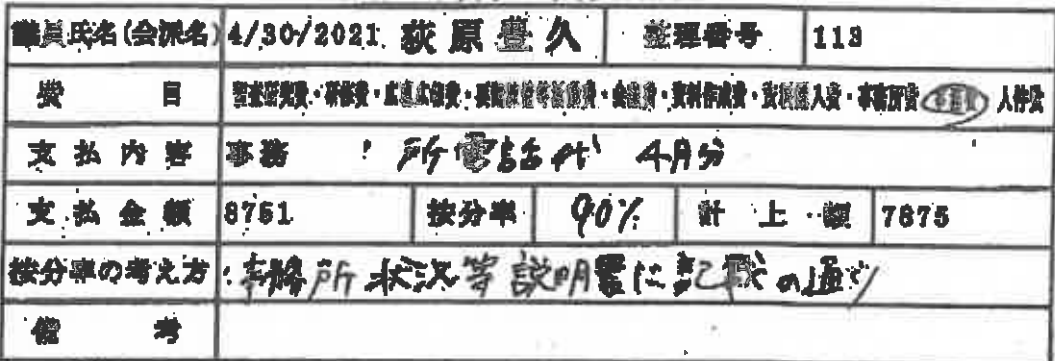 議員氏名(会派名) 4/30/2021 荻原豊久 整理番号 113
費目 調査研究費・研修費・広聴広報費・要請陳情等活動費・会議費・資料作成費・資料購入費・事務所費・事務費 人件費
支払内容 事務所電話代 4月分
支払金額 8751 按分率 90% 計上額 7875
按分率の考え方 事務所状況等説明書に記載の通り
備考